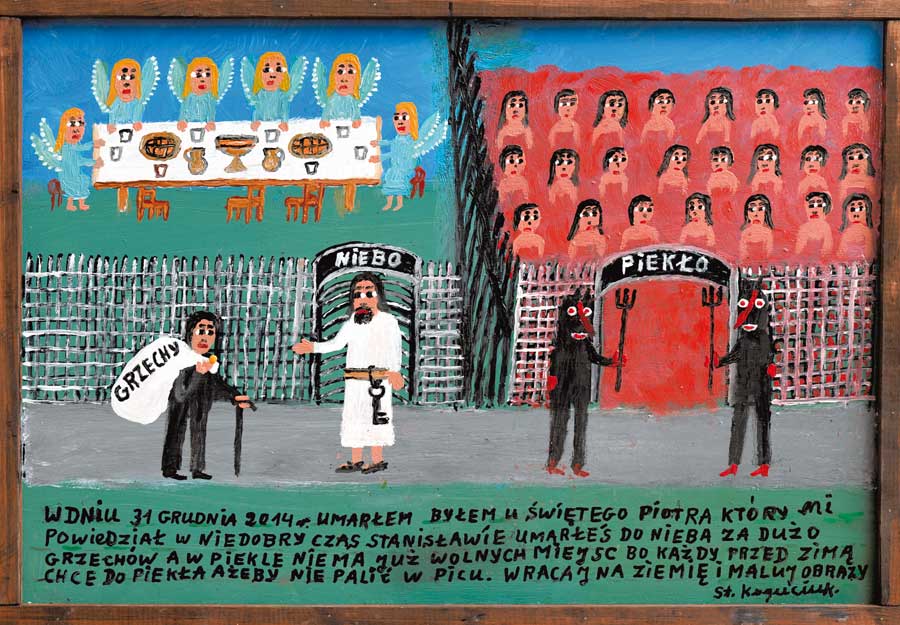 NIEBO
PIEKŁO
GRZECHY
W DNIU 31 GRUDNIA 2014 r. UMARŁEM BYŁEM U ŚWIĘTEGO PIOTRA KTÓRY MI
POWIEDZIAŁ W NIEDOBRY CZAS STANISŁAWIE UMARŁEŚ DO NIEBA ZA DUŻO
GRZECHÓW A W PIEKLE NIEMA JUŻ WOLNYCH MIEJSC BO KAŻDY PRZED ZIMĄ
CHCE DO PIEKŁA AŻEBY NIE PALIĆ W PICU. WRACAJ NA ZIEMIĘ I MALUJ OBRAZY
St. Koguciuk.